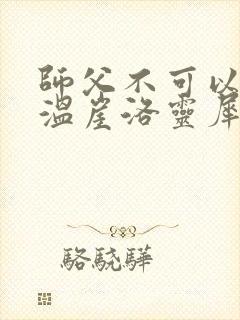 師父不可以
溫崖洛靈犀
駱驍驊